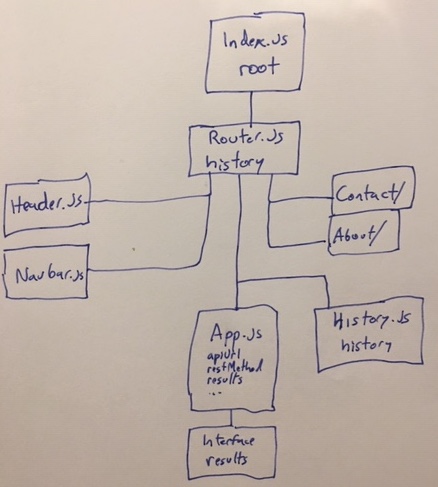 Index.Js
root
Router.Js
history
Header.Js
Navbar.Js
Contact/
About/
App.Js
apiUrl
restMethod
results
...
History.Js
history
Interface
results